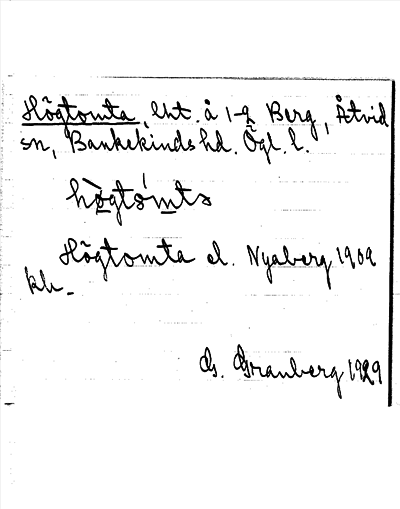 Högtomta, lht. å 1-2 Berg, Åtvid
sn, Bankekinds hd. Ögl. l.
Högtomta el. Nyaberg 1909
kh.
G. Granberg 1929